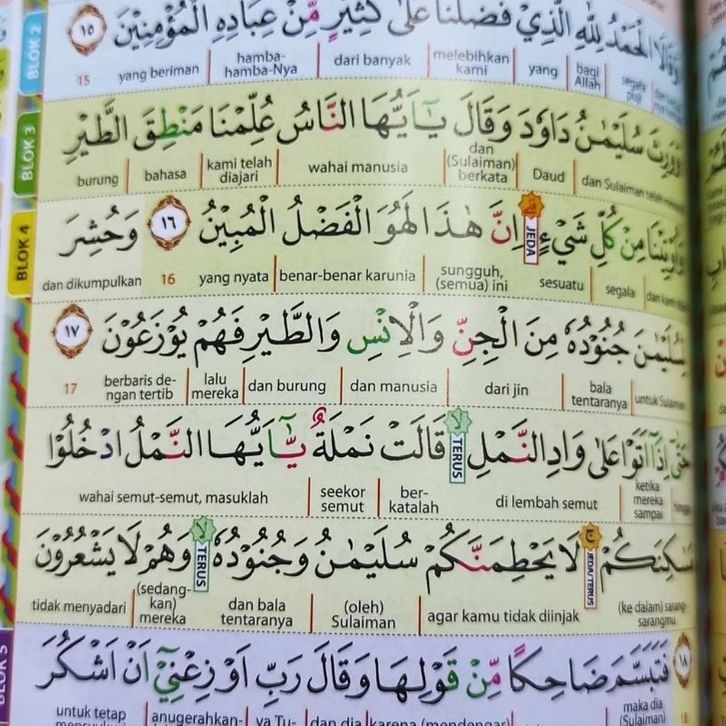 وَقَالَا الْحَمْدُ لِلّٰهِ الَّذِيْ فَضَّلَنَا عَلٰى كَثِيْرٍ مِّنْ عِبَادِهِ الْمُؤْمِنِيْنَ ١٥
segala puji bagi Allah yang melebihkan kami dari banyak hamba-hamba-Nya yang beriman 15
BLOK 2
وَوَرِثَ سُلَيْمٰنُ دَاوٗدَ وَقَالَ يٰٓاَيُّهَا النَّاسُ عُلِّمْنَا مَنْطِقَ الطَّيْرِ
dan Sulaiman telah Daud dan (Sulaiman) berkata wahai manusia kami telah diajari bahasa burung
BLOK 3
وَاُوْتِيْنَا مِنْ كُلِّ شَيْءٍ JEDA اِنَّ هٰذَا لَهُوَ الْفَضْلُ الْمُبِيْنُ ١٦ وَحُشِرَ
segala sesuatu sungguh, (semua) ini benar-benar karunia yang nyata 16 dan dikumpulkan
BLOK 4
لِسُلَيْمٰنَ جُنُوْدُهٗ مِنَ الْجِنِّ وَالْاِنْسِ وَالطَّيْرِ فَهُمْ يُوْزَعُوْنَ ١٧
untuk Sulaiman bala tentaranya dari jin dan manusia dan burung lalu mereka berbaris de-ngan tertib 17
حَتّٰىٓ اِذَآ اَتَوْا عَلٰى وَادِ النَّمْلِ لا TERUS قَالَتْ نَمْلَةٌ يّٰٓاَيُّهَا النَّمْلُ ادْخُلُوْا
hingga ketika mereka sampai di lembah semut ber-katalah seekor semut wahai semut-semut, masuklah
مَسٰكِنَكُمْ ج JEDA/TERUS لَا يَحْطِمَنَّكُمْ سُلَيْمٰنُ وَجُنُوْدُهٗ لا TERUS وَهُمْ لَا يَشْعُرُوْنَ
(ke dalam) sarang-sarangmu agar kamu tidak diinjak (oleh) Sulaiman dan bala tentaranya (sedang-kan) mereka tidak menyadari
BLOK 5
١٨ فَتَبَسَّمَ ضَاحِكًا مِّنْ قَوْلِهَا وَقَالَ رَبِّ اَوْزِعْنِيْٓ اَنْ اَشْكُرَ
18 maka dia (Sulaiman) karena (mendengar) dan dia ya Tu- anugerahkan- untuk tetap